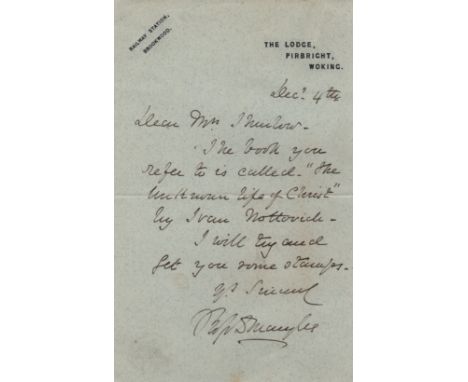 RAILWAY STATION,
BROOKWOOD.
THE LODGE,
PIRBRIGHT,
WOKING.
Decr. 4th
Dear Mrs Thurlow -
The book you
refer to is called - "The
Unknown life of Christ"
by Ivan Nottovich -
I will try and
get you some stamps -
Yrs Sincerely
Ross D Mangles